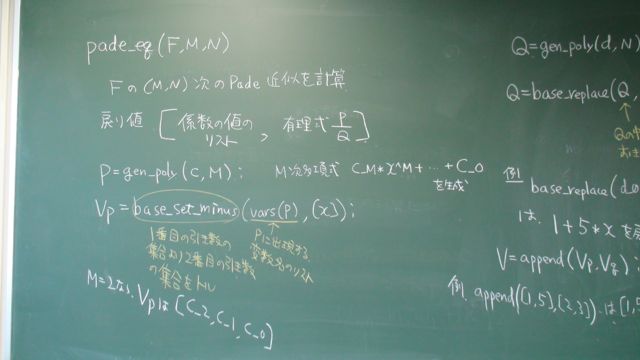 pade_eq(F,M,N)
Fの(M,N)次のPade 近似を計算
戻り値 [係数の値のリスト, 有理式 P/Q]
P=gen_poly(C,M); M次多項式 C_M*x^M+…+C_0 を生成
Vp=base_set_minus(vars(P),[x]);
1番目の引き数の
集合より2番目の引き数
の集合をトル
Pに出現する
変数名のリスト
M=2なら、Vpは[C_2,C_1,C_0]
Q=gen_poly(d,N)
Q=base_replace(Q,
Qの
例 base_replace(
は、1+5*xを
V=append(Vp,Vq);
例. append([1,5],[2,3]).は[1,5,